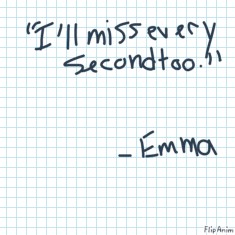 "I'll miss every
second too."
- Emma
FlipAnim